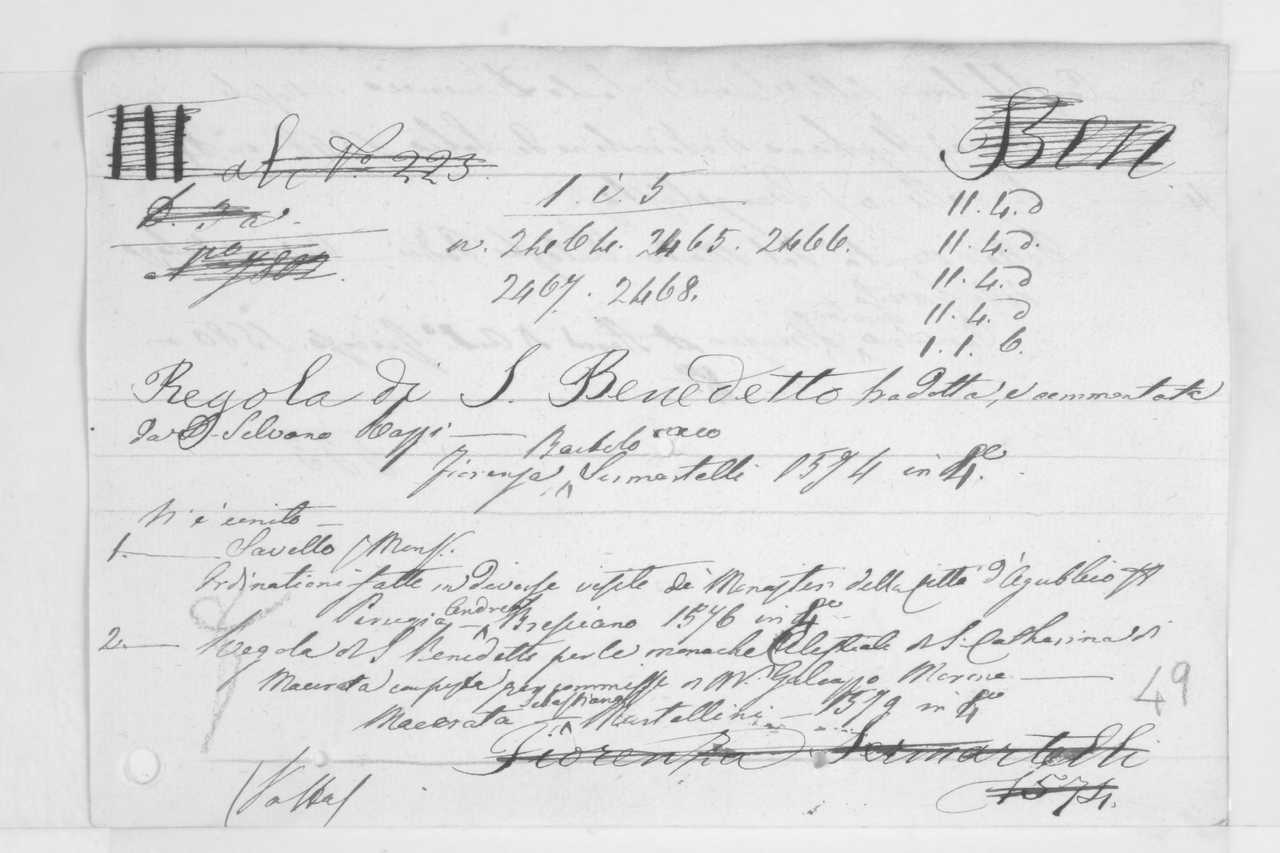 III
al N.o 223.
Ben
1. i. 5
n. 2464. 2465. 2466.
2467. 2468.
11. 4. d
11. 4. d.
11. 4. d
11. 4. d
1. 1. 6.
Regola di S. Benedetto tradotta, e commentata
da D. Silvano Razzi
Fiorenza Bartolomeo Sermartelli 1574 in 4.o
Vi è unito
1. Savello Mons.
Ordinationi fatte in diverse visite de Monasteri della città d'Agubbio
Perugia Andrea Bresciano 1576 in 4.o
2. Regola di S. Benedetto per le monache di S. Catharina di
Macerata per commiss.
Macerata Sebastiano Martellini 1579 in 4.o
49
Fiorenza Sermartelli
1574.
(Volta)